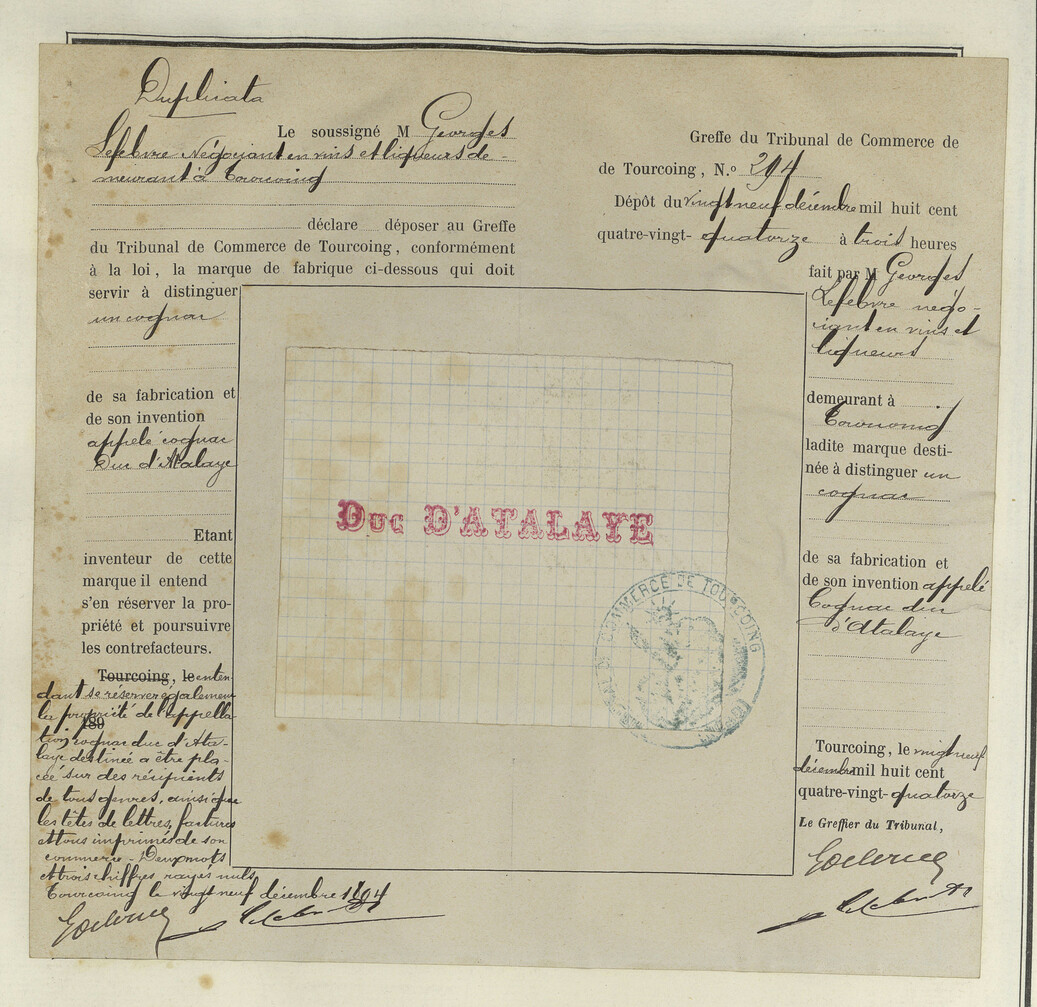 Duplicata
Le soussigné M Georges
Lefebvre Négociant en vins et liqueurs de-
meurant à Tourcoing
déclare déposer au Greffe
du Tribunal de Commerce de Tourcoing, conformément
à la loi, la marque de fabrique ci-dessous qui doit
servir à distinguer
un cognac
de sa fabrication et
de son invention
appelé cognac
Duc d'Atalaye
Etant
inventeur de cette
marque il entend
s'en réserver la pro-
priété et poursuivre
les contrefacteurs.
Tourcoing, le enten-
dant se réserver également
la propriété de l'appella-
189
tion cognac duc d'Ata-
laye destinée a être pla-
cée sur des récipients
de tous genres, ainsi que
les têtes de lettres, factures
et tous imprimés de son
commerce - Deux mots
et trois chiffres rayés nuls
Tourcoing le vingt neuf décembre 1894
DUC D'ATALAYE
COMMERCE DE TOURCOING
Greffe du Tribunal de Commerce de
de Tourcoing, N.º 294
Dépôt du vingt neuf décembre mil huit cent
quatre-vingt-quatorze à trois heures
fait par M Georges
Lefebvre négo-
ciant en vins et
liqueurs
demeurant à
Tourcoing
ladite marque desti-
née à distinguer un
cognac
de sa fabrication et
de son invention appelé
Cognac duc
d'Atalaye
Tourcoing, le vingt neuf
décembre mil huit cent
quatre-vingt-quatorze
Le Greffier du Tribunal,